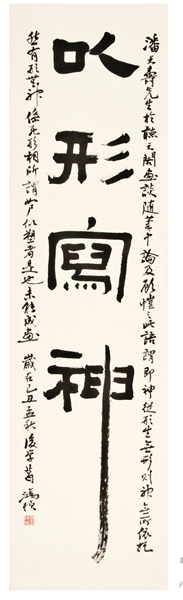 潘天壽先生於聽天閣畫談隨筆中論及顧愷之此語謂即神從形生無形則神無所依托
以形寫神
然有形無神係死形相所謂如尸似塑者是也未能成畫 歲在己丑孟秋後學葛鴻楨